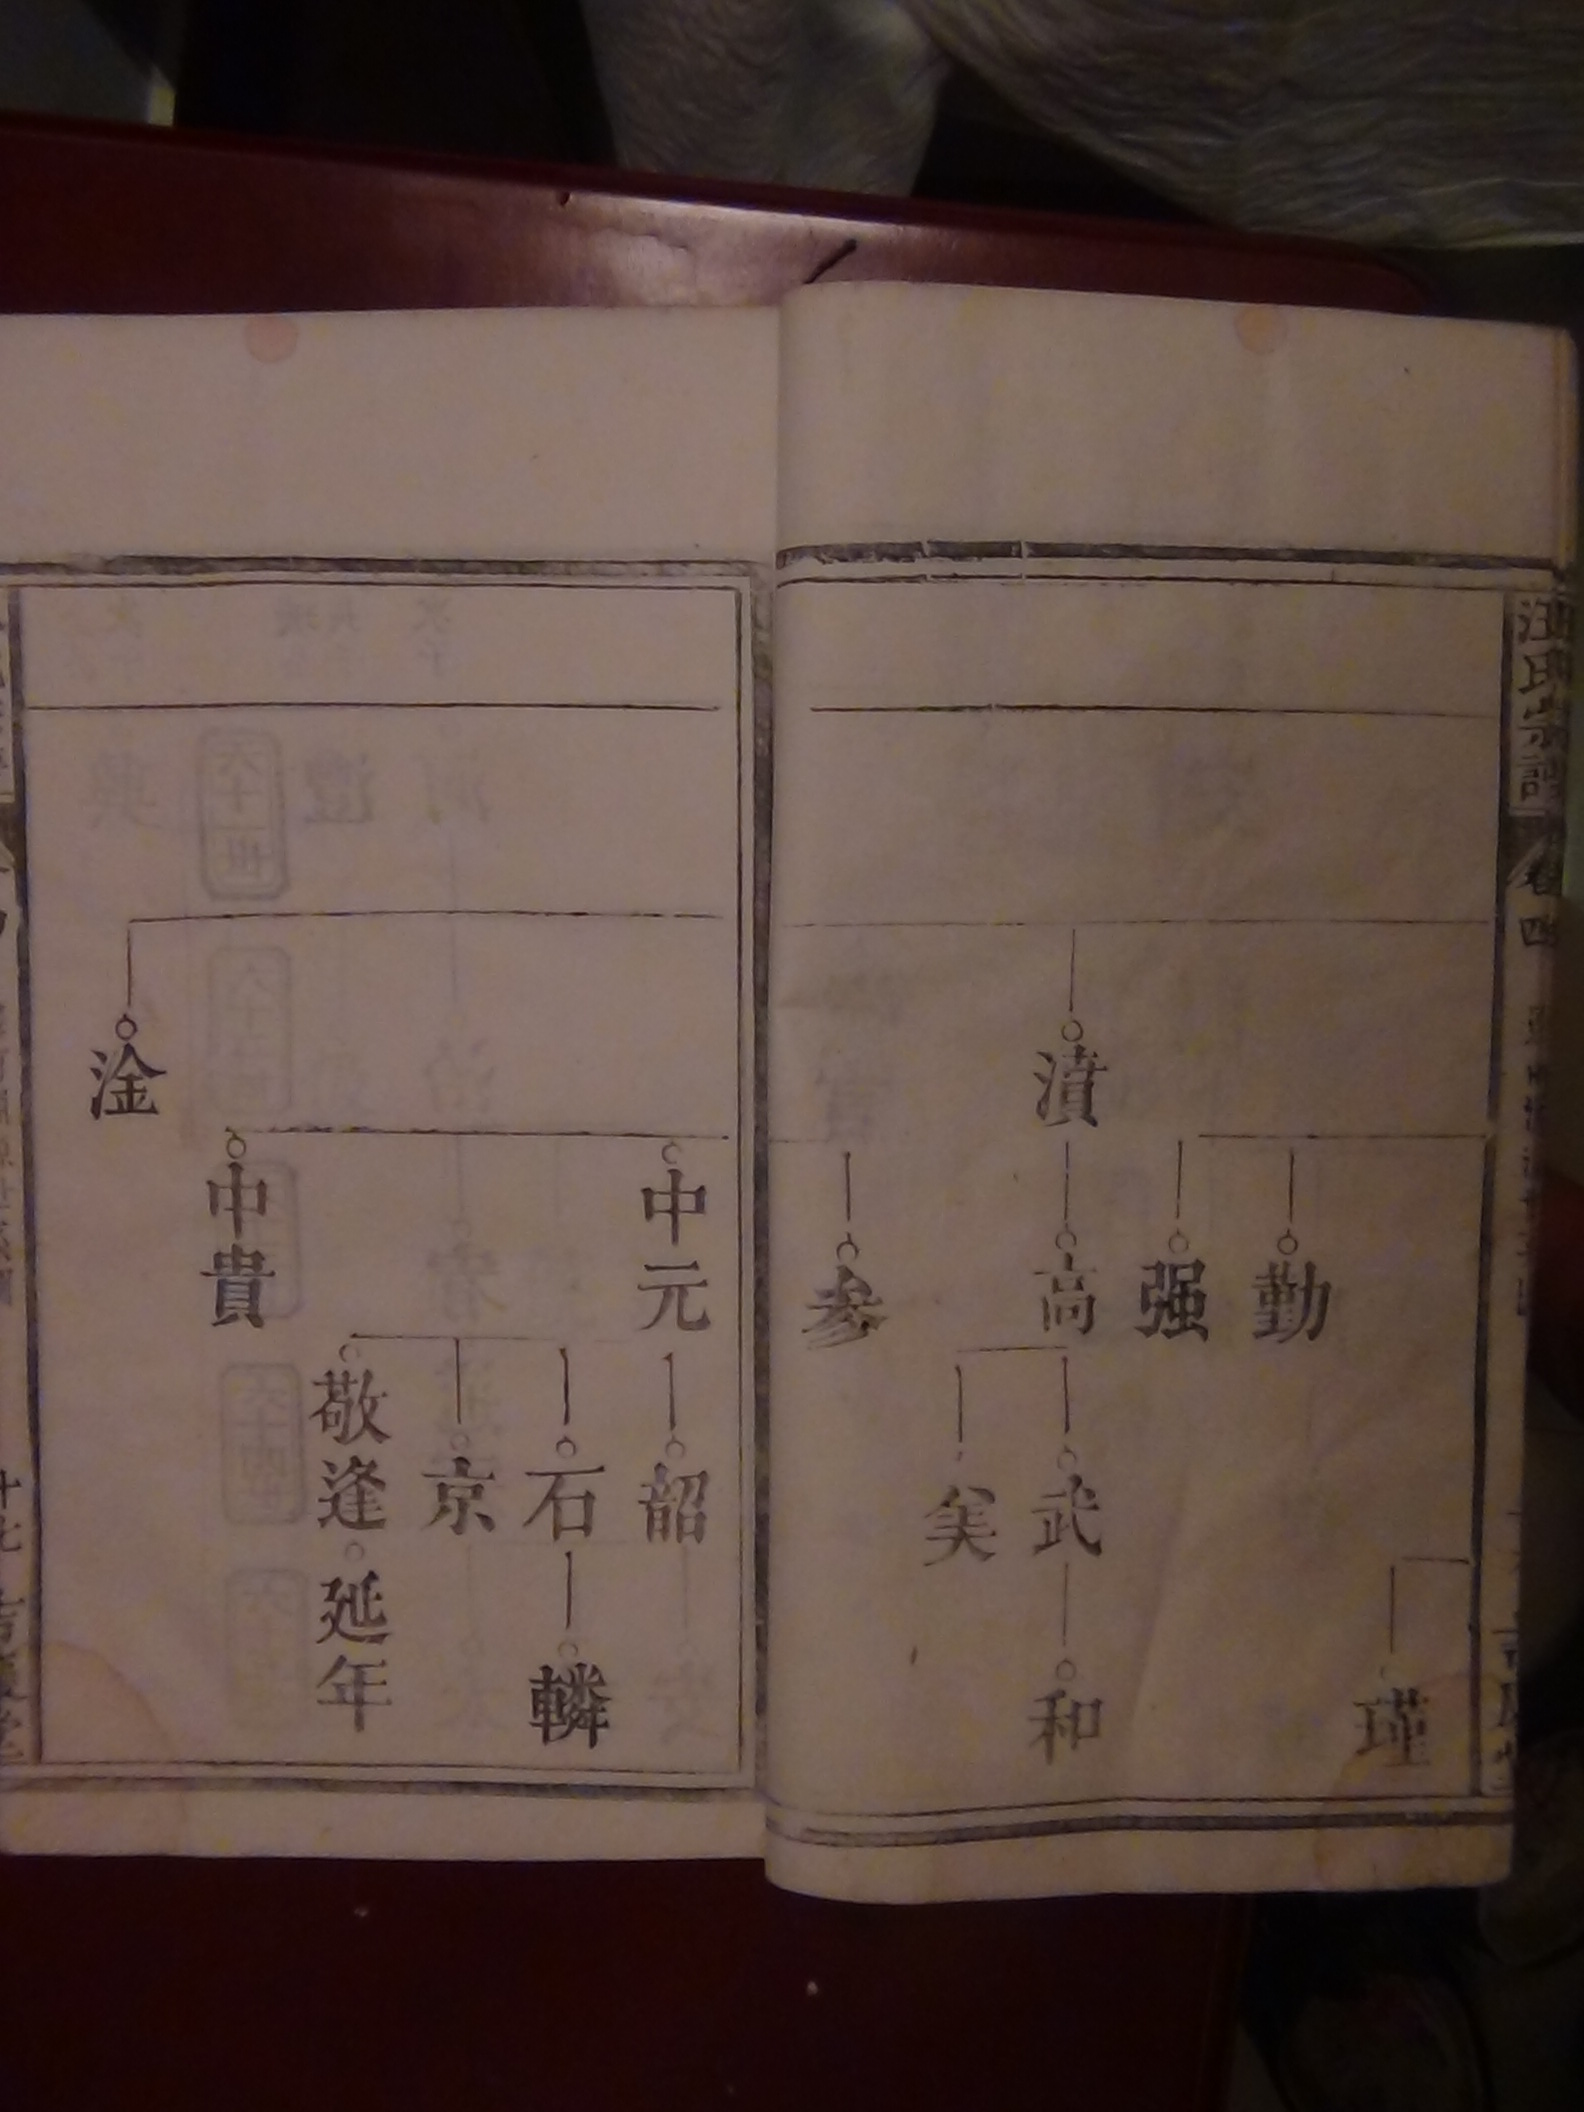 汪氏宗譜
卷四
勤
强
瀆
高
武
和
矦
瑾
参
中元
韶
石
轔
京
敬逢
延年
中貴
淦